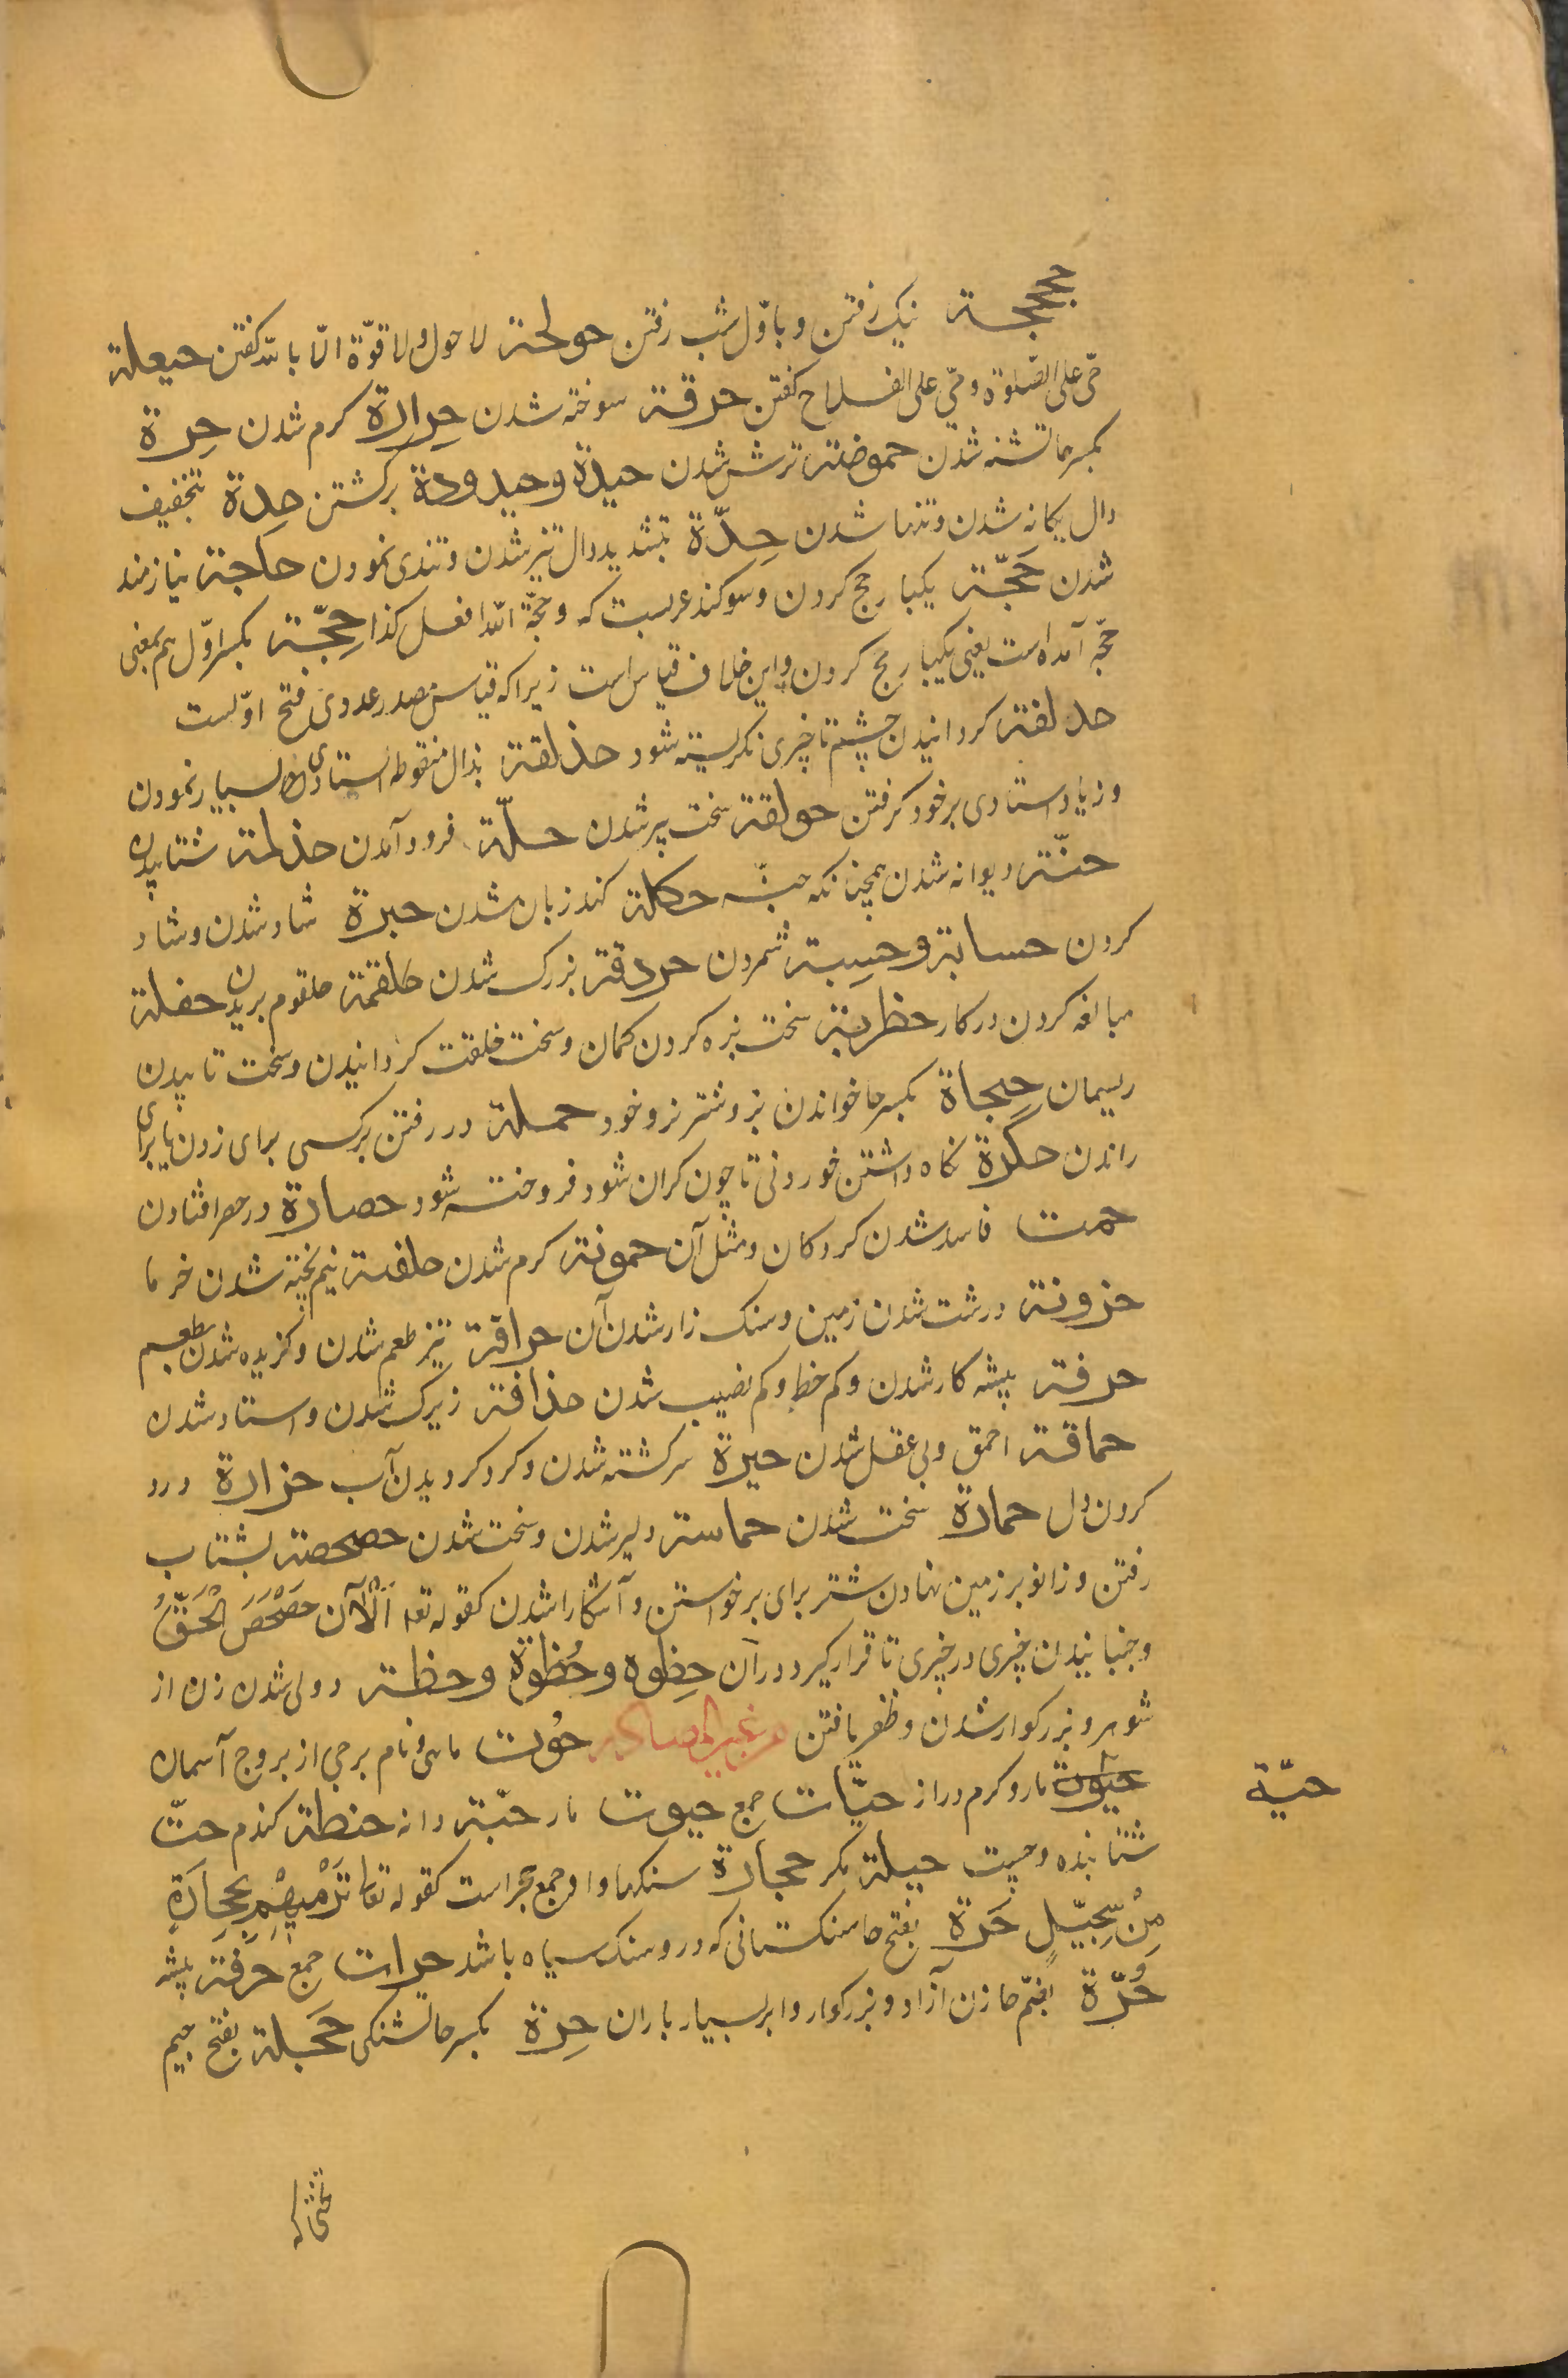 حجحجة نیک رفتن و باوّل شب رفتن حولحة لا حول و لا قوّة الّا بالله کفتن حیعلة
حیّ علی الصّلوة و حیّ علی الفلاح کفتن حرقة سوخته شدن حِرارة کرم شدن حِرة
بکسر حا تشنه شدن حموضة ترش شدن حیدة و حیدودة برکشتن حِدة بتخفیف
دال یکانه شدن و تنها شدن حِدّة بتشدید دال تیز شدن و تندی نمودن حاجة نیازمند
شدن حَجّة یکبار حج کردن و سوکند عربست که و حجّة الله افعل کذا حِجّة بکسر اوّل هم بمعنی
حجّه آمده است یعنی یکبار حج کردن و این خلاف قیاس است زیرا که قیاس مصدر عددی فتح اوّلست
حدلقة کردانیدن چشم تا چیزی نکریسته شود حذلقة بذال منقوطه استادی بسیار نمودن
و زیاد استادی بر خود کرفتن حولقة سخت پیر شدن حلّة فرود آمدن حذلمة شتابیدن
حنّة دیوانه شدن همچنانکه جنّه حکلة کند زبان شدن حبرة شاد شدن و شاد
کردن حسابة و حسِبة شمردن حردقة بزرک شدن حلقمة حلقوم بریدن حفلة
مبالغه کردن در کار حظربة سخت بزه کردن کمان و سخت خلقت کردانیدن و سخت تابیدن
ریسمان حِجاة بکسر حا خواندن بز و شتر نزد خود حملة در رفتن بر کسی برای زدن یا برای
راندن حکرة نکاه داشتن خوردنی تا چون کران شود فروخته شود حصارة در حصر افتادن
حمت فاسد شدن کردکان و مثل آن حموتة کرم شدن حلقنة نیم پخته شدن خرما
حزونة درشت شدن زمین و سنک زار شدن آن حراقة تیز طعم شدن و کزیده شدن بطعم
حرفة پیشه کار شدن و کم حظ و کم نصیب شدن حذاقة زیرک شدن و استاد شدن
حماقة احمق و بی عقل شدن حیرة سرکشته شدن و کرد کردیدن آب حزازة درد
کردن دل حمازة سخت شدن حماسة دلیر شدن و سخت شدن حصحصة بشتاب
رفتن و زانو بر زمین نهادن شتر برای برخواستن و آشکارا شدن کقوله تعا اَلْآنَ حَصْحَصَ الْحَقُّ
و جنبانیدن چیزی در چیزی تا قرار کیرد در آن حِظوه و حُظوة و حظة دولی شدن زن از
شوهر و بزرکوار شدن و ظفر یافتن من غیر المصادر حُوت ماهی و نام برجی از بروج آسمان
حیوة مار و کرم دراز حیّات جمع حیوت مار حبّة دانه حنطة کندم حتّ
حیّة
شتابنده و چست حیلة مکر حجارة سنکها و او جمع حجر است کقوله تعالی تَرْمِیهِمْ بِحِجَارَةٍ
مِنْ سِجّیلٍ حَرّة بفتح حا سنکستانی که درو سنک سیاه باشد حرات جمع حرفة پیشه
حُرّة بضمّ حا زن آزاد و بزرکوار و ابر بسیار باران حِرة بکسر حا تشنکی حَجَلة بفتح جیم